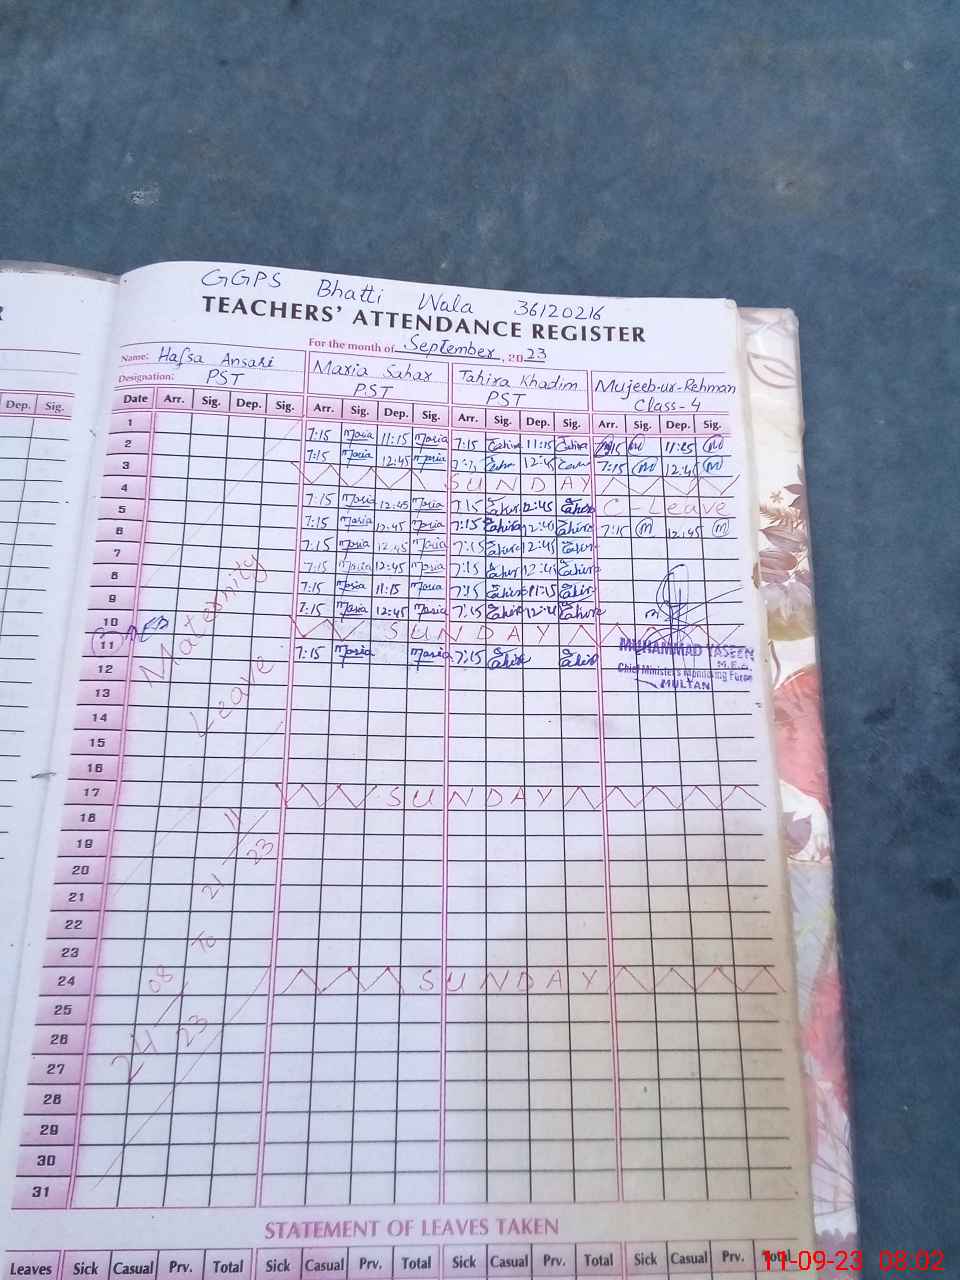 GGPS Bhatti Wala 36120216
TEACHERS' ATTENDANCE REGISTER
For the month of September, 2023
Name: Hafsa Ansari Maria Sahar Tahira Khadim Mujeeb-ur-Rehman
Designation: PST PST PST Class-4
Dep. Sig. Date Arr. Sig. Dep. Sig. Arr. Sig. Dep. Sig. Arr. Sig. Dep. Sig. Arr. Sig. Dep. Sig.
1 7:15 Maria 11:15 Maria 7:15 Tahira 11:15 Tahira 7:15 M 11:15 M
2 7:15 Maria 12:45 Maria 12:45 7:15 M 12:45 M
3 SUNDAY
4 7:15 Maria 12:45 Maria 7:15 12:45 C-Leave
5 7:15 Maria 12:45 Maria 7:15 Tahira Tahira 7:15 M 12:45 M
6 7:15 Maria 12:45 Maria 7:15 12:45
7 7:15 Maria 12:45 Maria 7:15 Tahira
8 7:15 Maria 11:15 Maria 7:15 Tahira 11:15 Tahira
9 7:15 Maria 12:45 Maria 7:15 Tahira Tahira
10 SUNDAY
11 7:15 Maria Maria 7:15 Tahira Tahira
12
13
14
15
16
17 SUNDAY
18
19
20
21
22
23
24 SUNDAY
25
26
27
28
29
30
31
Maternity
Leave
24/08/23 To 21/11/23
MUHAMMAD YASEEN
M.E.A.
Chief Minister's Monitoring Force
MULTAN
STATEMENT OF LEAVES TAKEN
Leaves Sick Casual Prv. Total Sick Casual Prv. Total Sick Casual Prv. Total Sick Casual Prv. Total
11-09-23 08:02